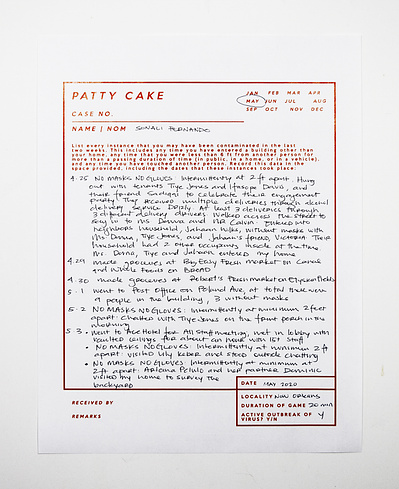 PATTY CAKE
CASE NO.
JAN FEB MAR APR
MAY JUN JUL AUG
SEP OCT NOV DEC
NAME | NOM SONALI FERNANDO
List every instance that you may have been contaminated in the last
two weeks. This includes any time you have entered a building other than
your home, any time that you were less than 6 ft from another person for
more than a passing duration of time (in public, in a home, or in a vehicle),
and any time you have touched another person. Record this data in the
space provided, including the dates that these instances took place:
4.25 NO MASKS NO GLOVES Intermittently at 2 ft apart. Hung
out with tenants Tiye Jones and Davis, and
their friend to celebrate their engagement
party. They received multiple deliveries through alcohol
delivery service Drizly. At least 3 deliveries through
3 different delivery drivers. Walked across the street to
say hi to Ms Donna and MR Calvin. Entered into
neighbors household, Jahann Wilks, without masks with
Ms Donna, Tiye Jones, and Jahann's friend, Victoria. Their
household had 2 other occupants inside at the time
Ms. Donna, Tiye and Jahann entered my home
4.29 made groceries at Big Easy Fresh market on Canal
and Whole Foods on BROAD
4.30 made groceries at Robert's Fresh market on Elysian Fields
5.1 went to Post Office on Poland Ave, at total there were
9 people in the building, 3 without masks
5.2 NO MASKS NO GLOVES: Intermittently at minimum 2 feet
apart: chatted with Tiye Jones on the front porch in the
morning
5.3. went to Ace Hotel for All Staff meeting, met in lobby with
vaulted ceilings for about an hour with staff
NO MASKS NO GLOVES: Intermittently at minimum 2 ft
apart: visited Lily Keber and stood outside chatting
NO MASKS NO GLOVES: Intermittently at minimum at
2 ft apart: Ariana and her partner Dominic
visited my home to survey the
backyard
DATE MAY 2020
LOCALITY NEW ORLEANS
DURATION OF GAME 20 min
ACTIVE OUTBREAK OF Y
VIRUS? Y/N
RECEIVED BY
REMARKS